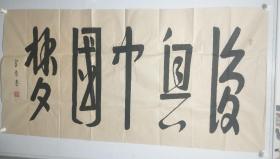 復興中國梦